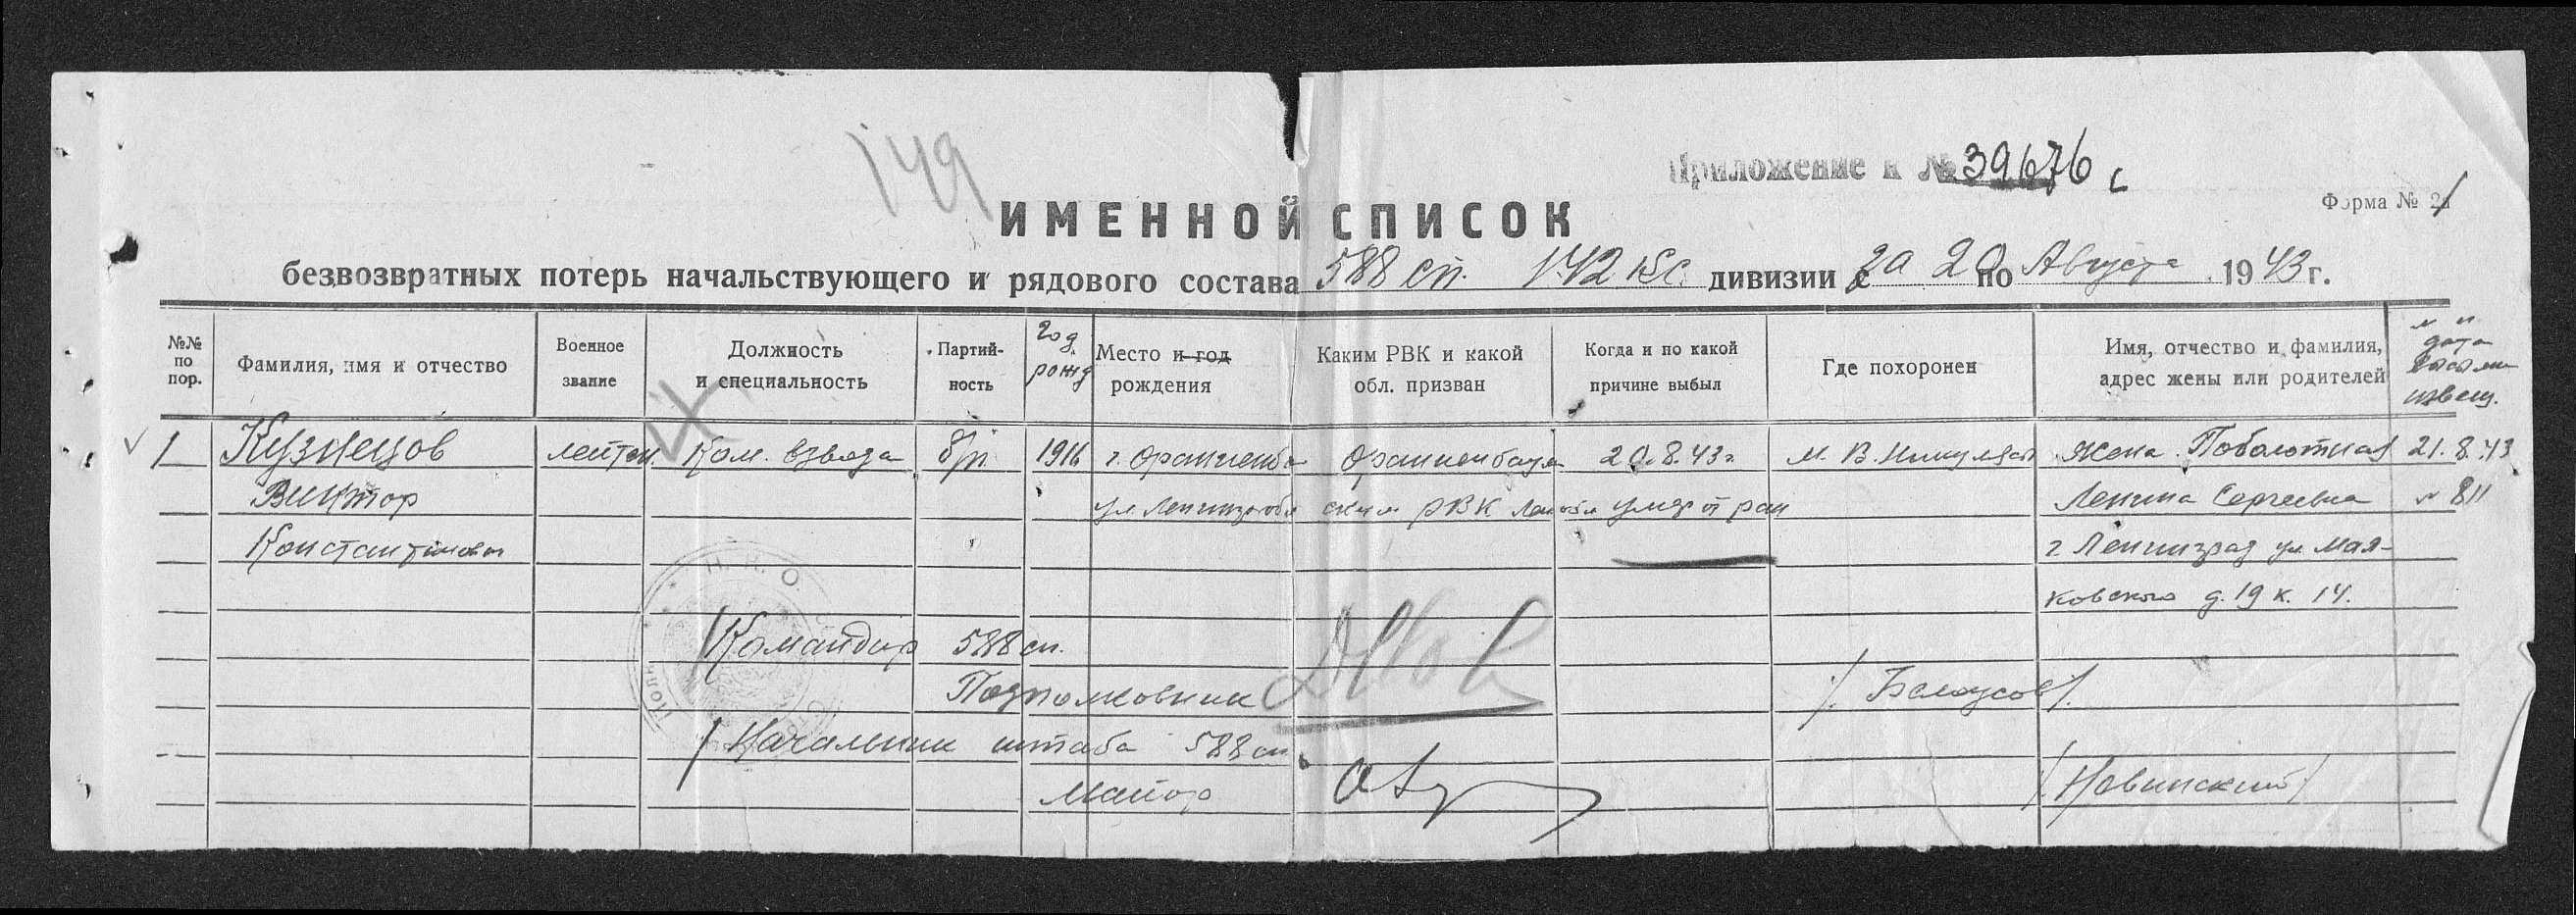 149
Приложение к № 39676 с
Форма № 2/
ИМЕННОЙ СПИСОК
безвозвратных потерь начальствующего и рядового состава 588 сп. 142 дивизии за 20 по Августа 1943 г.
№№ по пор.
Фамилия, имя и отчество
Военное звание
Должность и специальность
Партийность
Год рожд
Место и год рождения
Каким РВК и какой обл. призван
Когда и по какой причине выбыл
Где похоронен
Имя, отчество и фамилия, адрес жены или родителей
№ и дата извещ.
1 Кузнецов лейтен. Ком. взвода б/п. 1916 г. Ораниенба Ораниенбаум 20.8.43г. Жена Поболотная 21.8.43
Виктор ул Ленинг обл ским РВК Лен обл умер от ран Ленина Сергеевна № 811
Константинович г Ленинград ул Мая-
ковского д. 19 к. 14.
Н.К.О.
Командир 588 сп.
Подполковник /Белоусов/.
Начальник штаба 588 сп
Майор /Новинский/